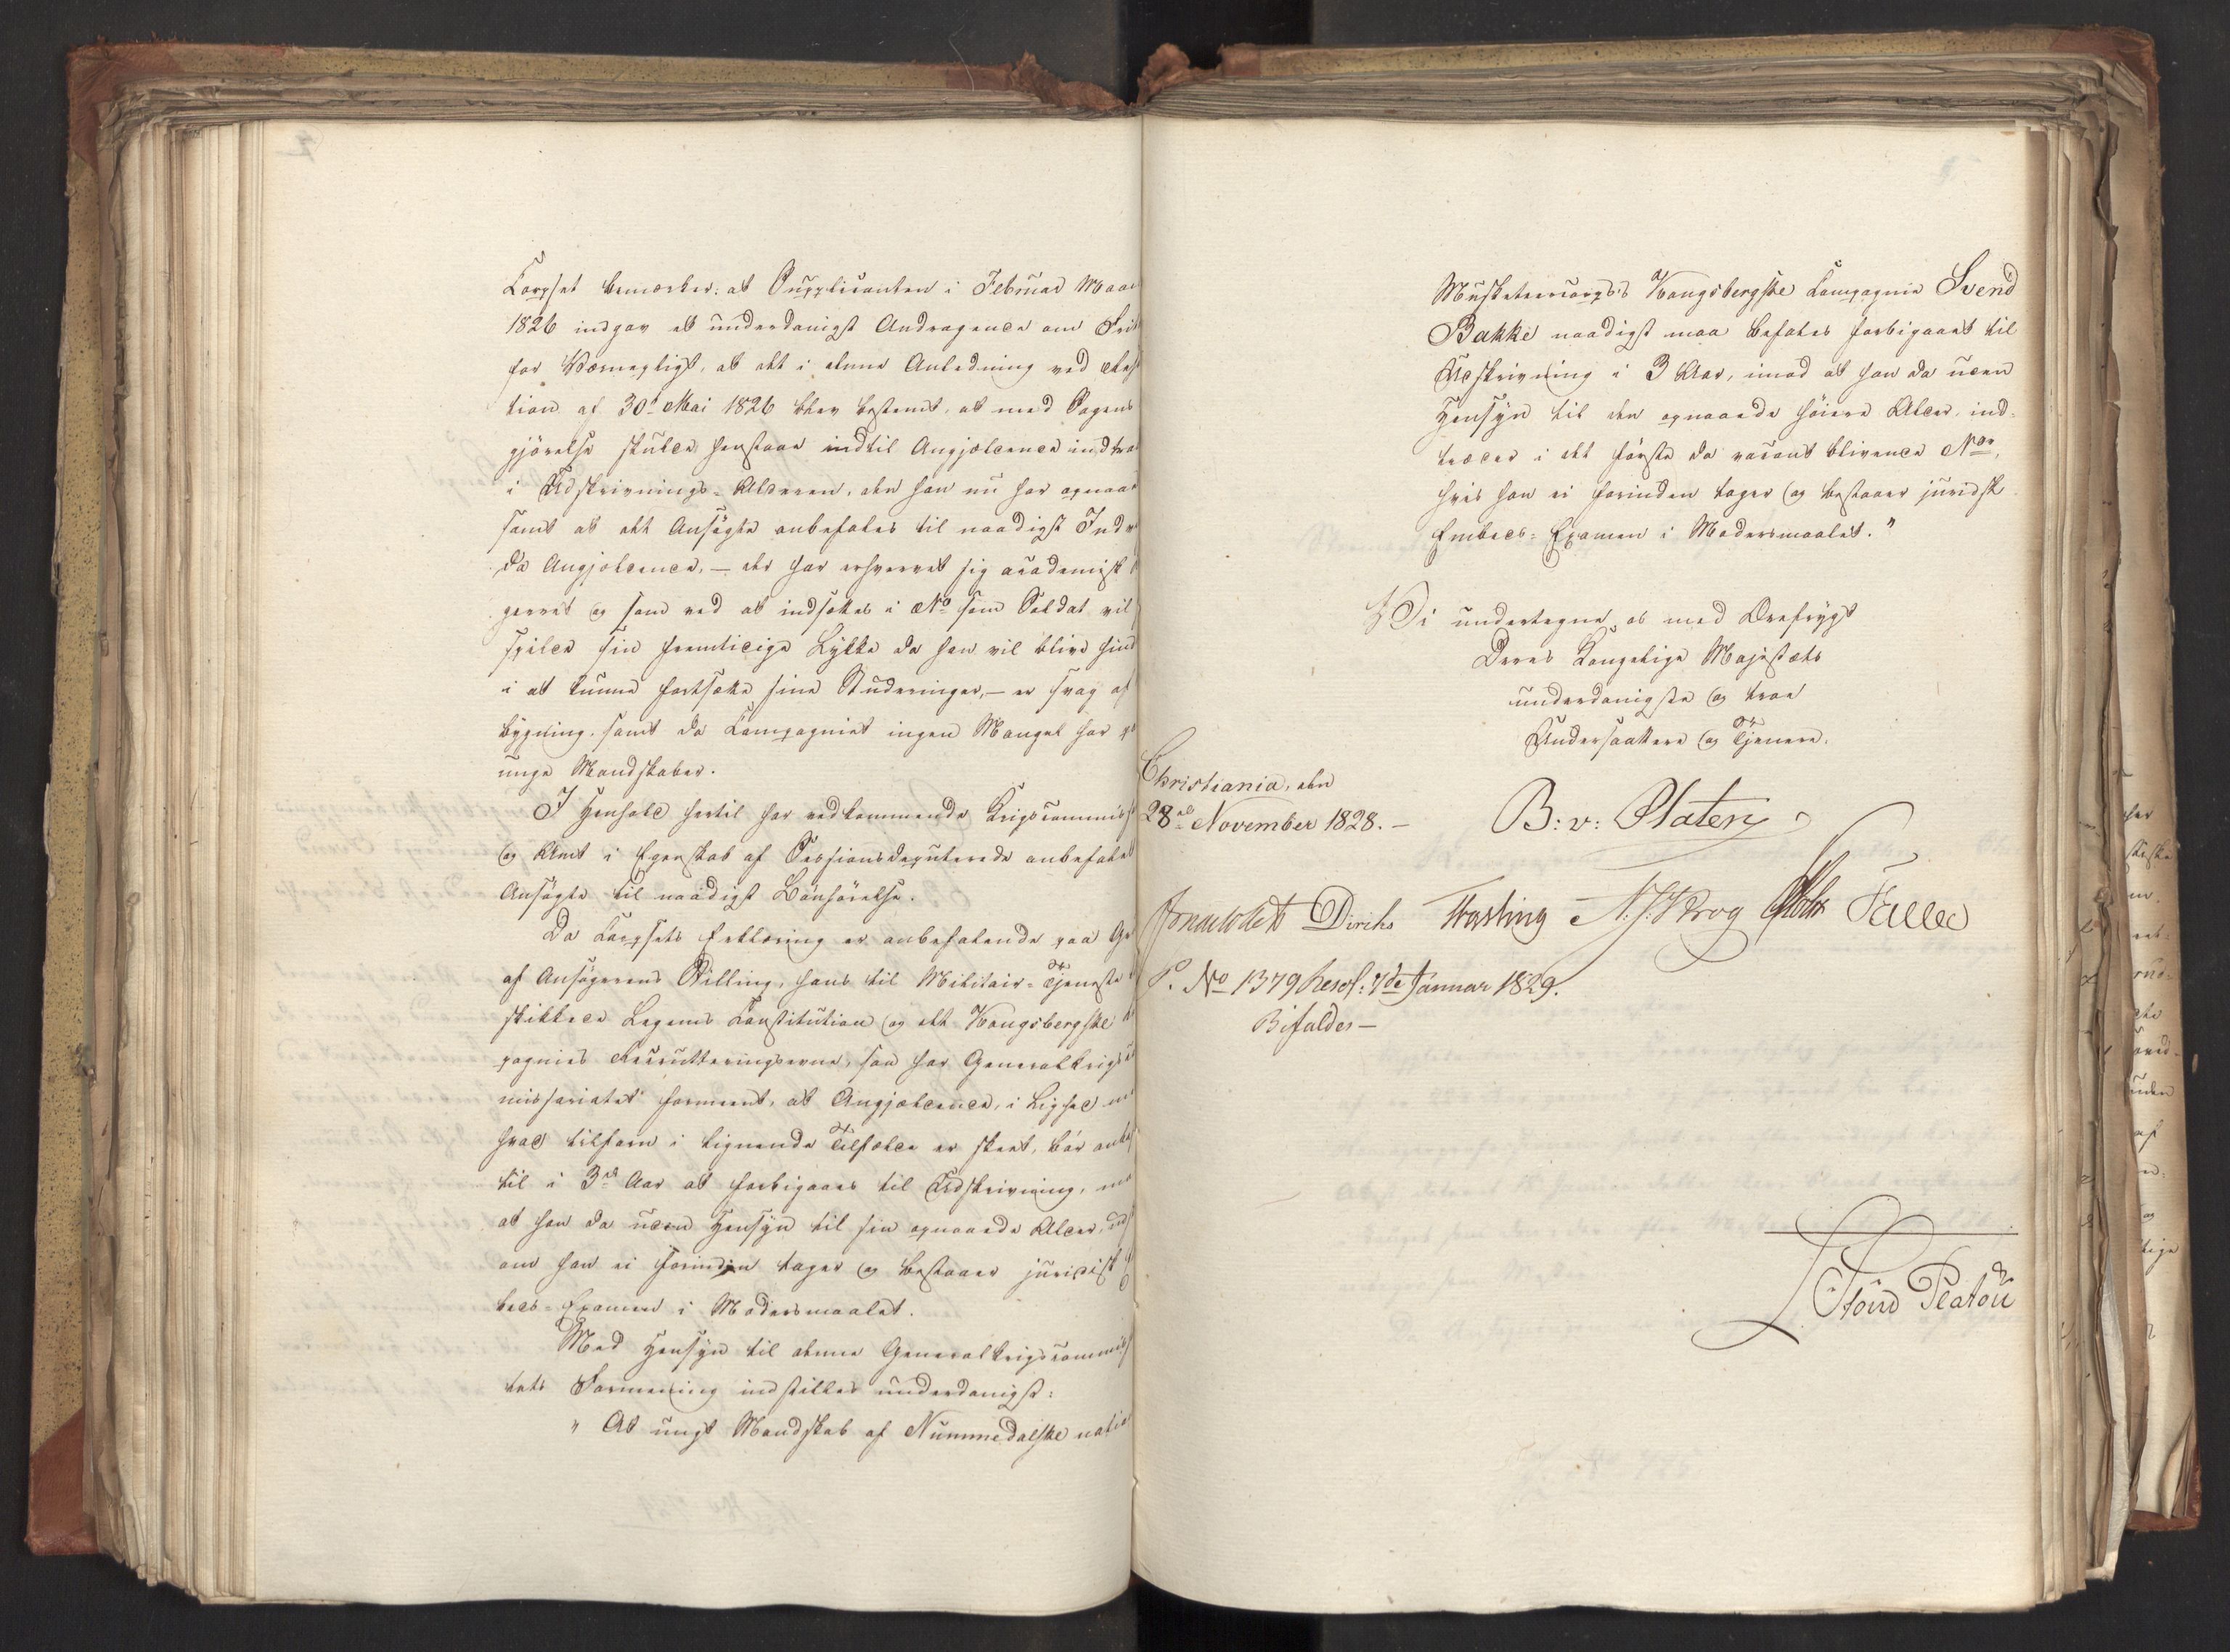 Corpset bemærker: at Supplicanten i Februar Maan
1826 indgav et underdanigst Andragende om Frit
for Værnepligt, at det i denne Anledning ved Reso
tion af 30te Mai 1826 blev bestemt, at med Sagens
gjörelse skulde henstaae indtil Angjældende indtra
i Udskrivnings-Alderen, den han nu har opnaa
samt at det Ansøgte anbefales til naadigst Ind
da Angjældende, — der har erhvervet sig academisk
gerret og som ved at indsættes i No som Soldat vil
spilde sin fremtidige Lykke da han vil blive hin
i at kunne fortsætte sine Studeringer, — er svag af
bygning, samt da Compagniet ingen Mangel har p
unge Mandskaber.
I Henhold hertil har vedkommende Krigscommiss
og Amt i Egenskab af Sessionsdeputerede anbefalet
Ansøgte til naadigst Bönhörelse.
Da Corpsets Erklæring er anbefalende paa Gr
af Ansøgerens Stilling, hans til Militair-Tjeneste
skikkede Legems Constitution og det Kongsbergske
pagnies Recrutteringsevne, saa har Generalkrigsc
missariatet formeent, at Angjældende, i Lighed me
hvad tilforn i lignende Tilfælde er skeet, bör anbef
til i 3de Aar at forbigaaes til Udskrivning, mo
at han da uden Hensyn til sin opnaaede Alder, ind
om han ei forinden tager og bestaaer juridisk
beds-Examen i Modersmaalet.
Med Hensyn til denne Generalkrigscommiss
tets Formening indstilles underdanigst:
" At ungt Mandskab af Nummedalske natio
Musketeercorps's Kongsbergske Compagnie Svend
Bakke naadigst maa befales forbigaaet til
Udskrivning i 3 Aar, imod at han da uden
Hensyn til den opnaaede høiere Alder, ind-
træder i det første da vacant blivende Noer,
hvis han ei forinden tager og bestaaer juridisk
Embeds-Examen i Modersmaalet."
Vi undertegne os med Ærefrygt
Deres Kongelige Majestæts
underdanigste og troe
Undersaattere og Tjenere.
Christiania, den
28de November 1828. —
B: v: Platen
Diriks Fasting N. J. Krog
P. No 1379 Resol: 7de Januar 1829.
Bifaldes —
Platou